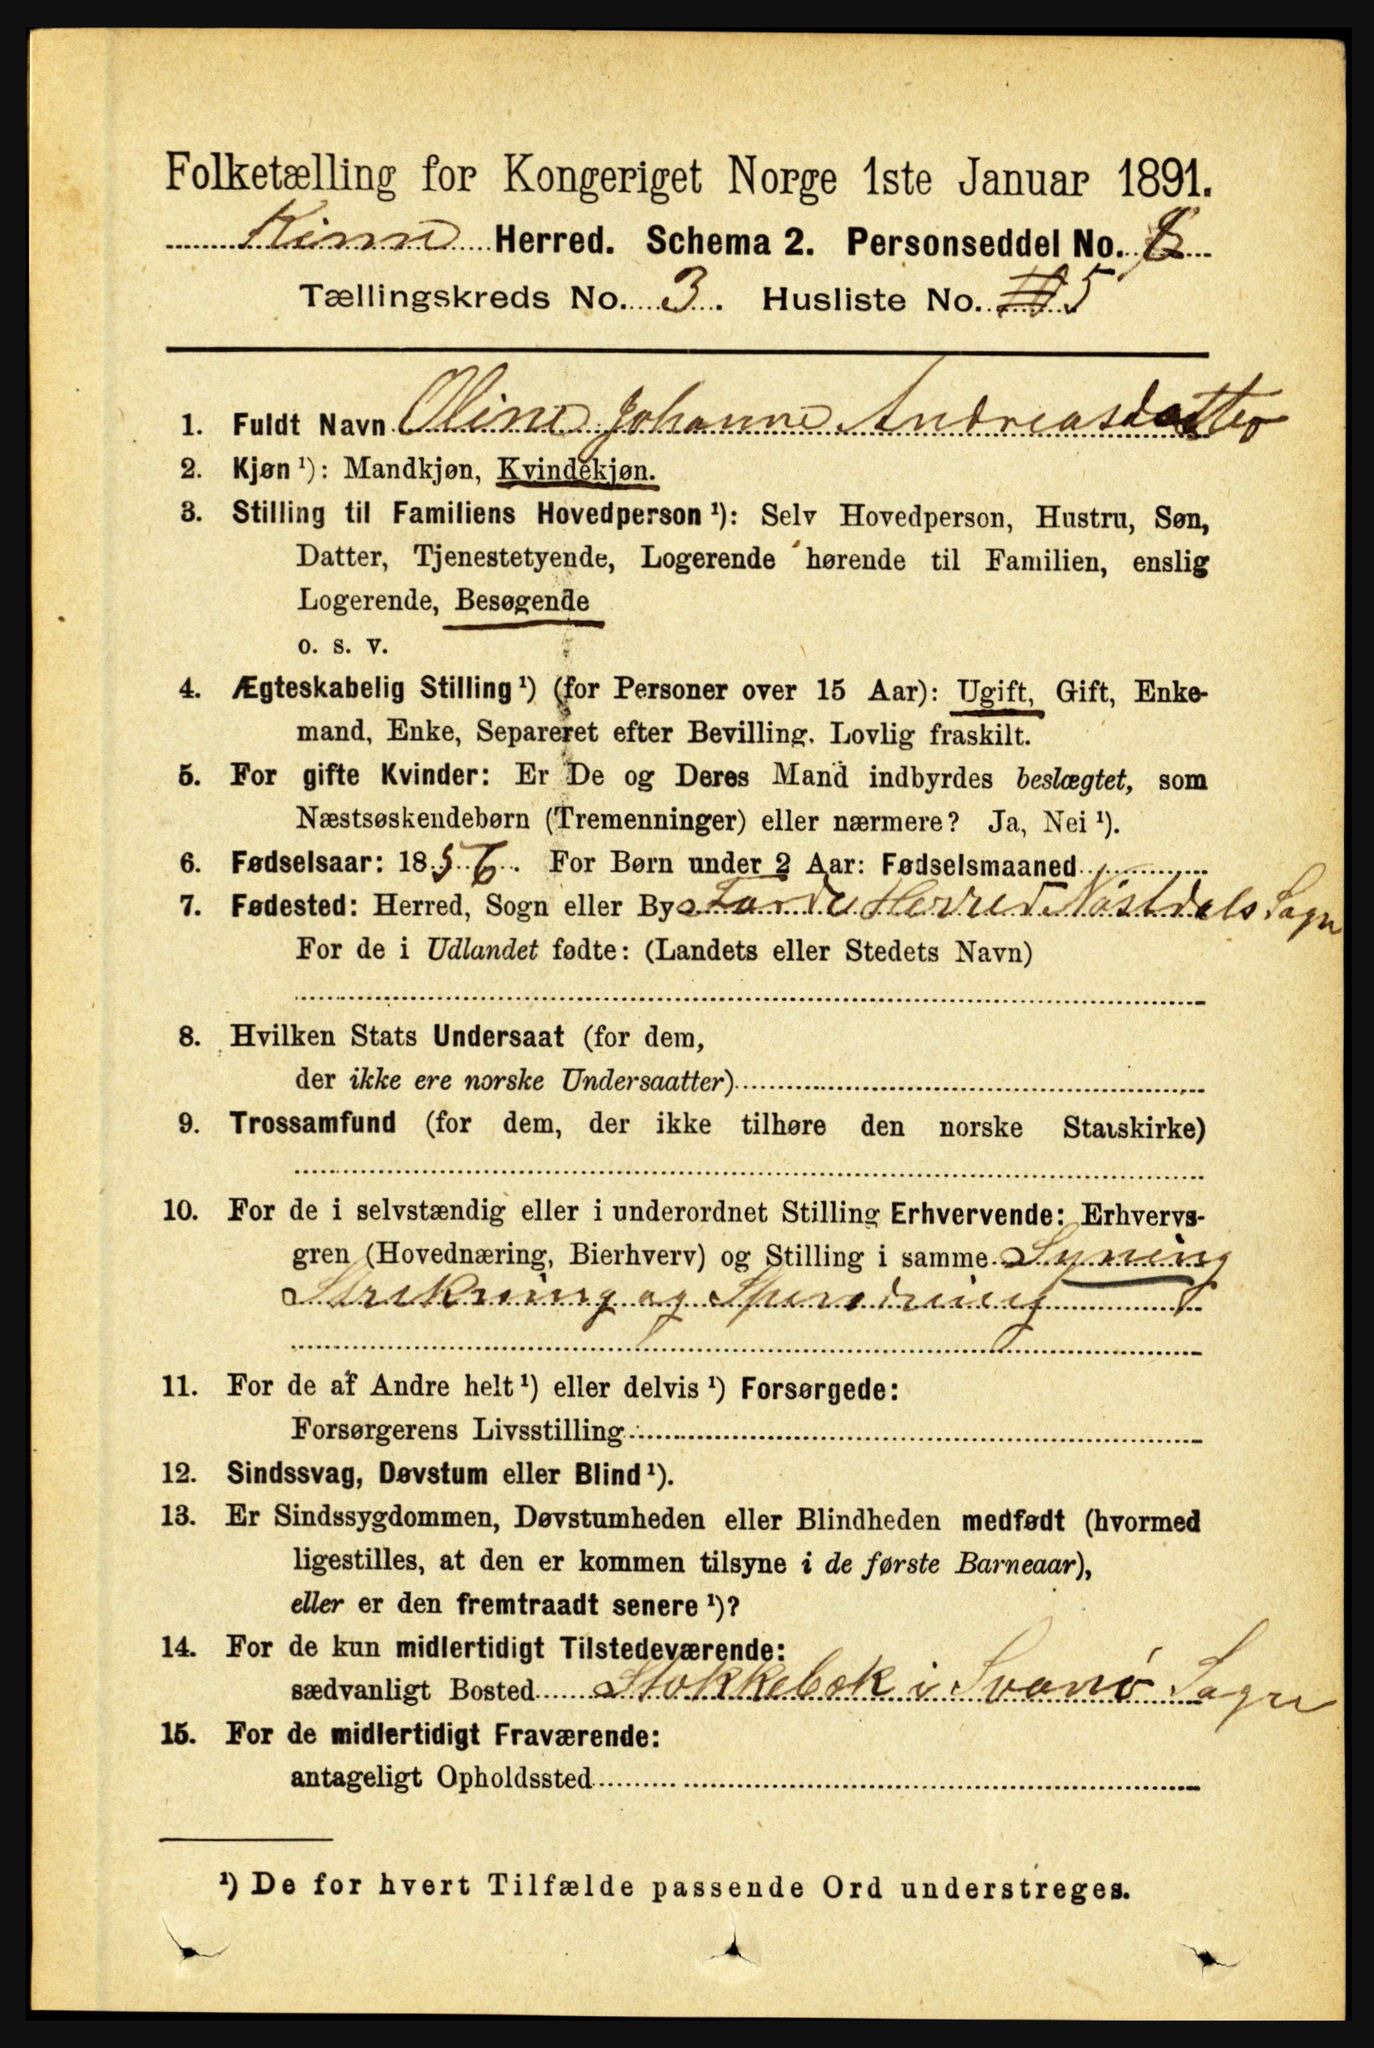 Folketælling for Kongeriget Norge 1ste Januar 1891.
Kinn Herred. Schema 2. Personseddel No.
Tællingskreds No. 3. Husliste No. 5
1. Fuldt Navn Oline Johanne Andreasdatter
2. Kjøn ¹): Mandkjøn, Kvindekjøn.
3. Stilling til Familiens Hovedperson ¹): Selv Hovedperson, Hustru, Søn,
Datter, Tjenestetyende, Logerende hørende til Familien, enslig
Logerende, Besøgende
o. s. v.
4. Ægteskabelig Stilling ¹) (for Personer over 15 Aar): Ugift, Gift, Enke-
mand, Enke, Separeret efter Bevilling. Lovlig fraskilt.
5. For gifte Kvinder: Er De og Deres Mand indbyrdes beslægtet, som
Næstsøskendebørn (Tremenninger) eller nærmere? Ja, Nei ¹).
6. Fødselsaar: 1856. For Børn under 2 Aar: Fødselsmaaned
7. Fødested: Herred, Sogn eller By Førde Herred Nøstdals Sogn
For de i Udlandet fødte: (Landets eller Stedets Navn)
8. Hvilken Stats Undersaat (for dem,
der ikke ere norske Undersaatter)
9. Trossamfund (for dem, der ikke tilhøre den norske Statskirke)
10. For de i selvstændig eller i underordnet Stilling Erhvervende: Erhvervs-
gren (Hovednæring, Bierhverv) og Stilling i samme Syning
Strikning og Spinding
11. For de af Andre helt ¹) eller delvis ¹) Forsørgede:
Forsørgerens Livsstilling
12. Sindssvag, Døvstum eller Blind ¹).
13. Er Sindssygdommen, Døvstumheden eller Blindheden medfødt (hvormed
ligestilles, at den er kommen tilsyne i de første Barneaar),
eller er den fremtraadt senere ¹)?
14. For de kun midlertidigt Tilstedeværende:
sædvanligt Bosted Stokkebæk i Svanø Sogn
15. For de midlertidigt Fraværende:
antageligt Opholdssted
¹) De for hvert Tilfælde passende Ord understreges.